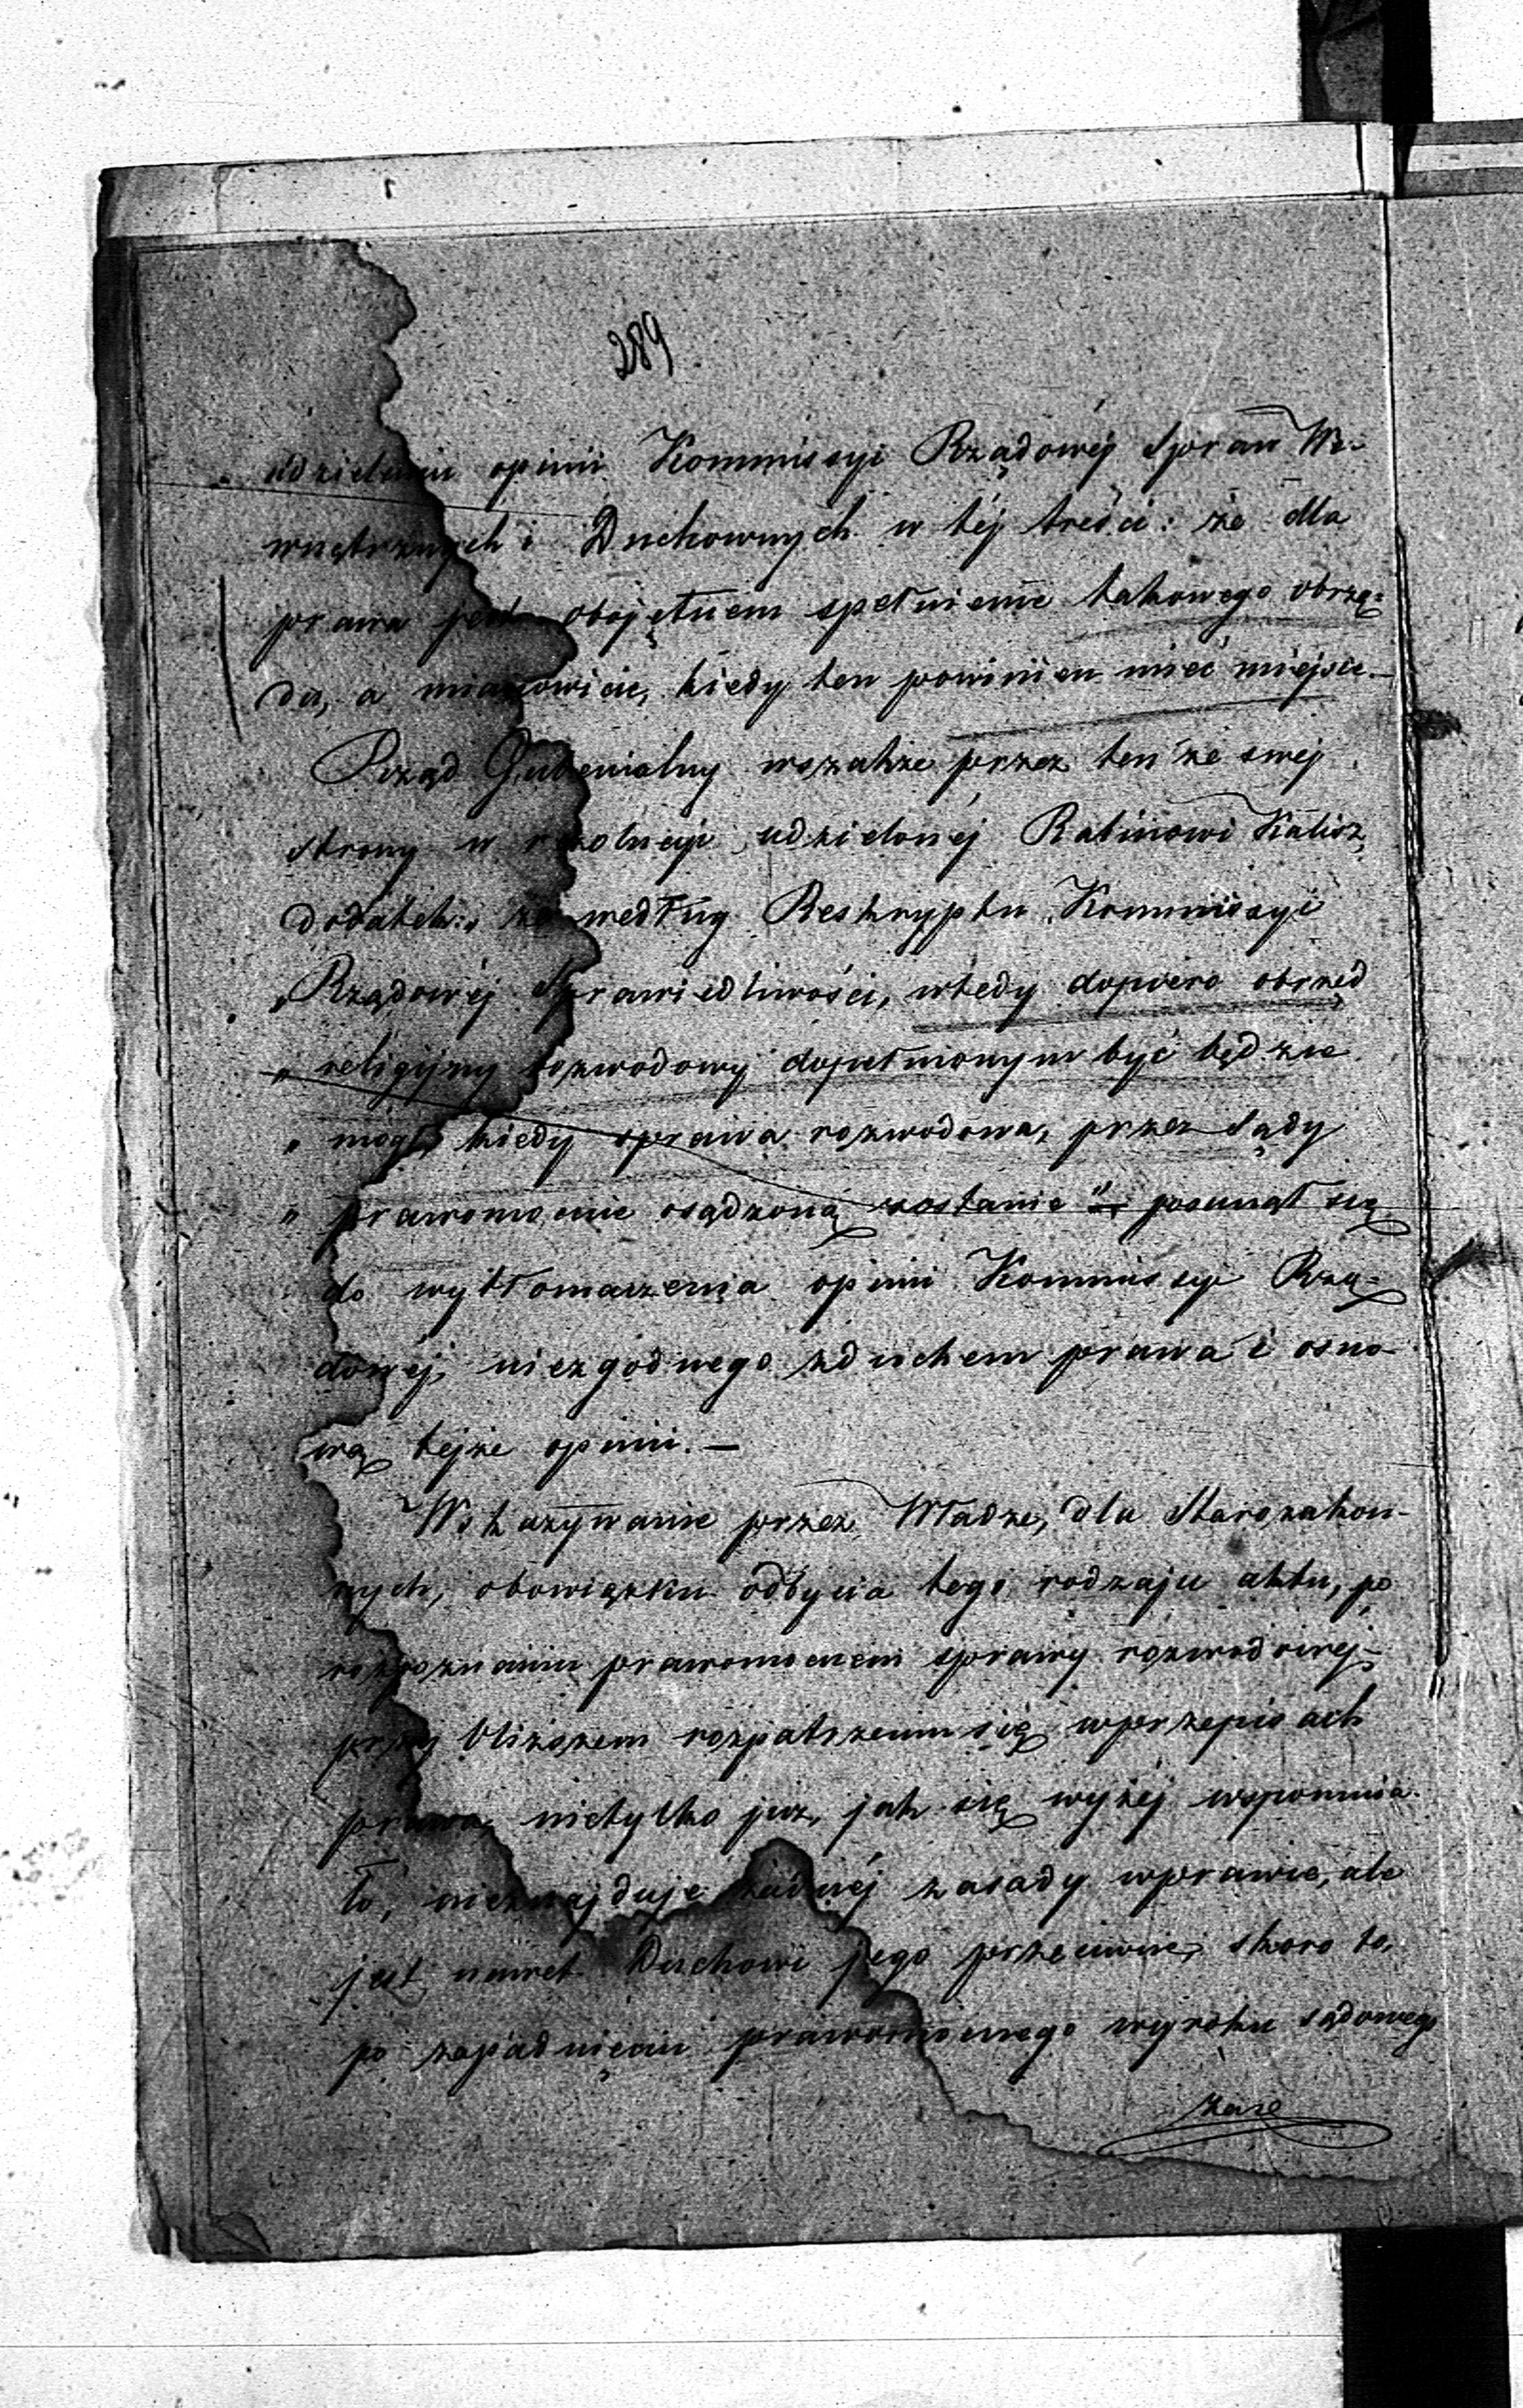 289
udzieleniu opinii Kommissyi Rządowéj Spraw We-
wnętrznych i Duchownych w téj treści: że dla
prawa jest obojętnem spełnienie takowego obrzę-
du, a mianowicie, kiedy ten powinien mieć miejsce.—
Rząd Gubernialny wszakże przez ten ze swéj
strony w rezolucyi udzielonéj Rabinowi Kalisz,
dodatek: „że według Reskryptu Kommissyi
„Rządowéj Sprawiedliwości, wtedy dopiero obrzęd
„religijny rozwodowy dopełnionym być będzie
„mógł, kiedy sprawa rozwodowa, przez Sądy
„prawomocnie osądzoną zostanie" — posunął się
do wytłomaczenia opinii Kommissyi Rzą-
dowéj, niezgodnego z duchem prawa i osno-
wą tejże opinii.—
Wskazywanie przez Władze, dla Starozakon-
nych, obowiązku odbycia tego rodzaju aktu, po
rozpoznaniu prawomocnem sprawy rozwodowej,
przy bliższem rozpatrzeniu się w przepisach
prawa nietylko już, jak się wyżéj wspomnia-
ło, nieznajduje żadnéj zasady w prawie, ale
jest nawet Duchowi jego przeciwne, skoro to,
po zapadnięciu prawomocnego wyroku sądowego